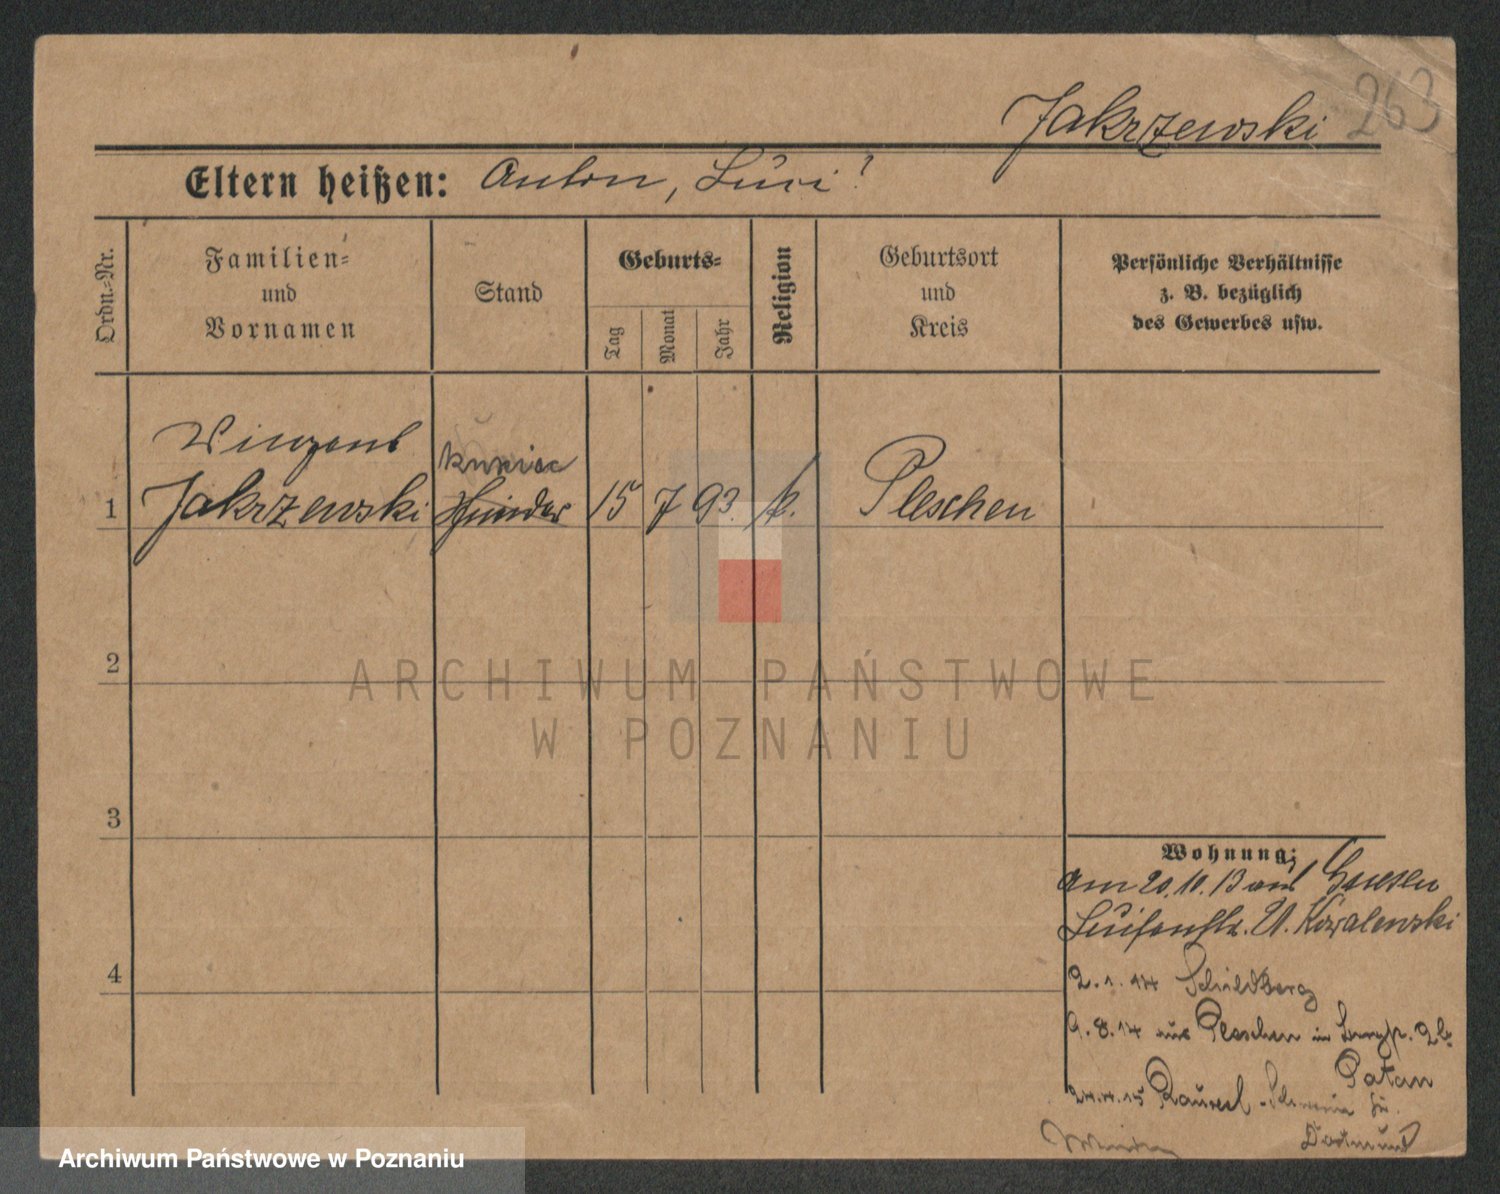 263
Jakrzewski
Eltern heißen: Anton,
Ordn.-Nr.
Familien-
und
Vornamen
Stand
Geburts-
Tag
Monat
Jahr
Religion
Geburtsort
und
Kreis
Persönliche Verhältnisse
z. B. bezüglich
des Gewerbes usw.
Vinzent
1 Jakrzewski 15 7 93. k. Pleschen
2
3
4
Wohnung:
am 20.10.13 aus Gnesen
Luisenstr. 21. Kowalewski
2.1.14 Schildberg
9.8.14 aus Pleschen in 2b
Patan
24.4.15 Rauxel
Dortmund
ARCHIWUM PAŃSTWOWE
W POZNANIU
Archiwum Państwowe w Poznaniu